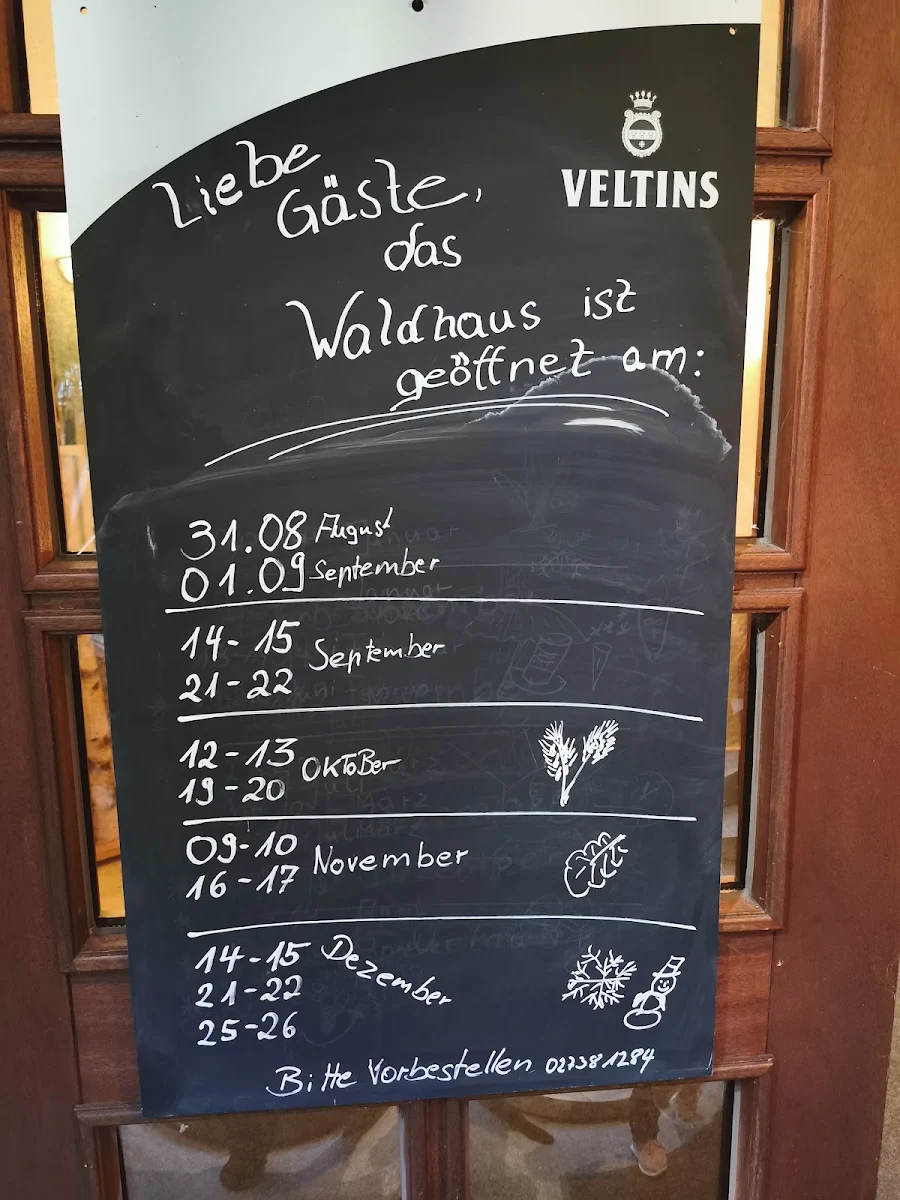 VELTINS
Liebe
Gäste,
das
Waldhaus ist
geöffnet am:
31.08 August
01.09 September
14-15 September
21-22
12-13 OKTOBer
19-20
09-10 November
16-17
14-15 Dezember
21-22
25-26
Bitte Vorbestellen 027381284